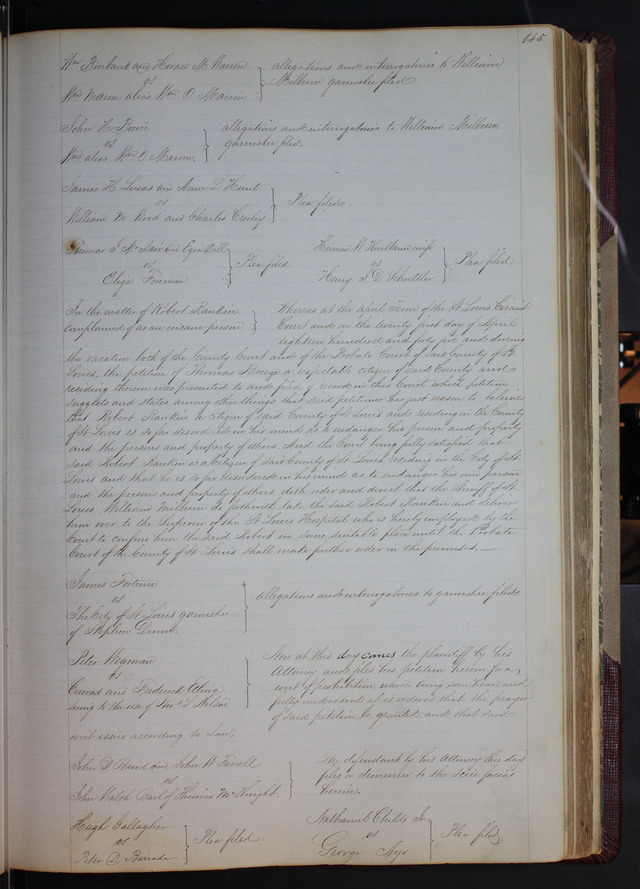 145
Wm Burbank and Horace M Warren } allegations and interrogatories to William
vs
Milburn garnishee filed
Wm Maron alias Wm O Maron
John H Bowie } allegations and interrogatories to William Milburn
vs
garnishee filed.
Wm alias Wm O Maron.
James H Lucas and Anne L Hunt
vs } Plea filed.
William M Wood and Charles
Thomas J Mc Nair Ezra Dill
vs } Plea filed
Eliza Freeman
Herman W and wife
vs } Plea filed
Henry D Schuttler
In the matter of Robert Rankin } Whereas at the April Term of the St Louis Circuit
complained of as an insane person } Court and on the twenty first day of April
eighteen hundred and fifty six and during
the vacation both of the County Court and of the Probate Court of said County of St
Louis, the petition of Thomas a respectable citizen of said County and
residing therein was presented to and filed of record in this Court which petition
suggests and states among other things that said petitioner has just reason to believe
that Robert Rankin a citizen of said County of St Louis and residing in the County
of St Louis is so far disordered in his mind as to endanger his person and property
and the persons and property of others. And the Court being fully satisfied that
said Robert Rankin is a Citizen of said County of St Louis residing in the City of St
Louis and that he is so far disordered in his mind as to endanger his own person
and the persons and property of others doth order and direct that the Sheriff of St
Louis William do forthwith take the said Robert Rankin and deliver
him over to the Superior of the St Louis Hospital who is hereby employed by the
Court to confine him the said Robert in some suitable place until the Probate
Court of the County of St Louis shall make further order in the premises. —
James Fortune
vs } allegations and interrogatories to garnishee filed
The City of St Louis garnishee
of Stephen Dunn.
Peter Wegman } Now at this day comes the plaintiff by his
vs
Attorney and files his petition herein for a
Conrad and Frederick
writ of prohibition which being seen heard and
suing to the use of Thos L Nelson
fully understood it is ordered that the prayer
of said petition be granted, and that said
writ issue according to Law.
John D Baird and John W Farrell } The defendant by his Attorney this day
vs
files a demurrer to the scire facias
John Walsh Bail of Thomas McKnight. } herein.
Hugh Gallagher
vs } Plea filed.
Peter D Barrada
Nathaniel Childs Jr
vs } Plea filed
George